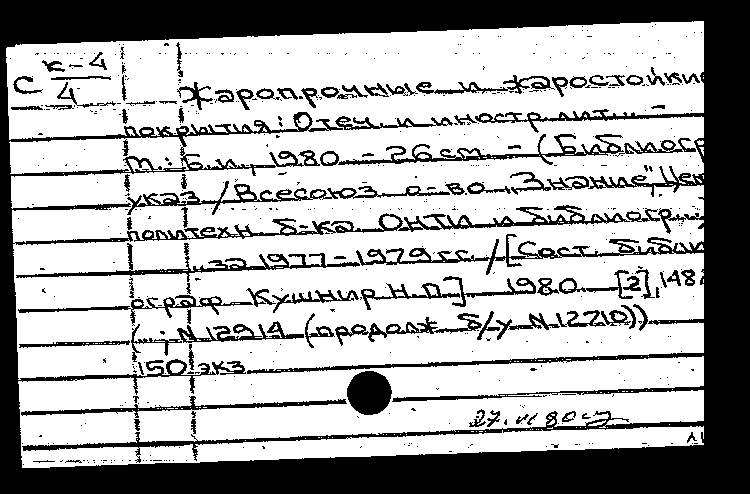 к-4
С 4
Жаропрочные и жаростойкие
покрытия: Отеч. и иностр. лит... -
м.: Б.и., 1980. - 26 см. - (Библиогр
указ / Всесоюз. о-во „Знание", Цен
политехн. б-ка. ОНТИ и библиогр...
...за 1977-1979 гг. / [Сост. библи
ограф Кушнир Н.П.] 1980 [2], 148
(...; N 12914 (продолж. б/у N 12210))
150 экз.